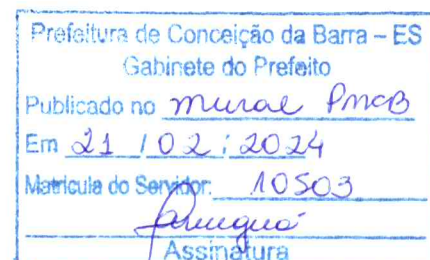 Prefeitura de Conceição da Barra – ES
Gabinete do Prefeito
Publicado no mural PMCB
Em 21 / 02 / 2024
Matrícula do Servidor: 10503
Assinatura